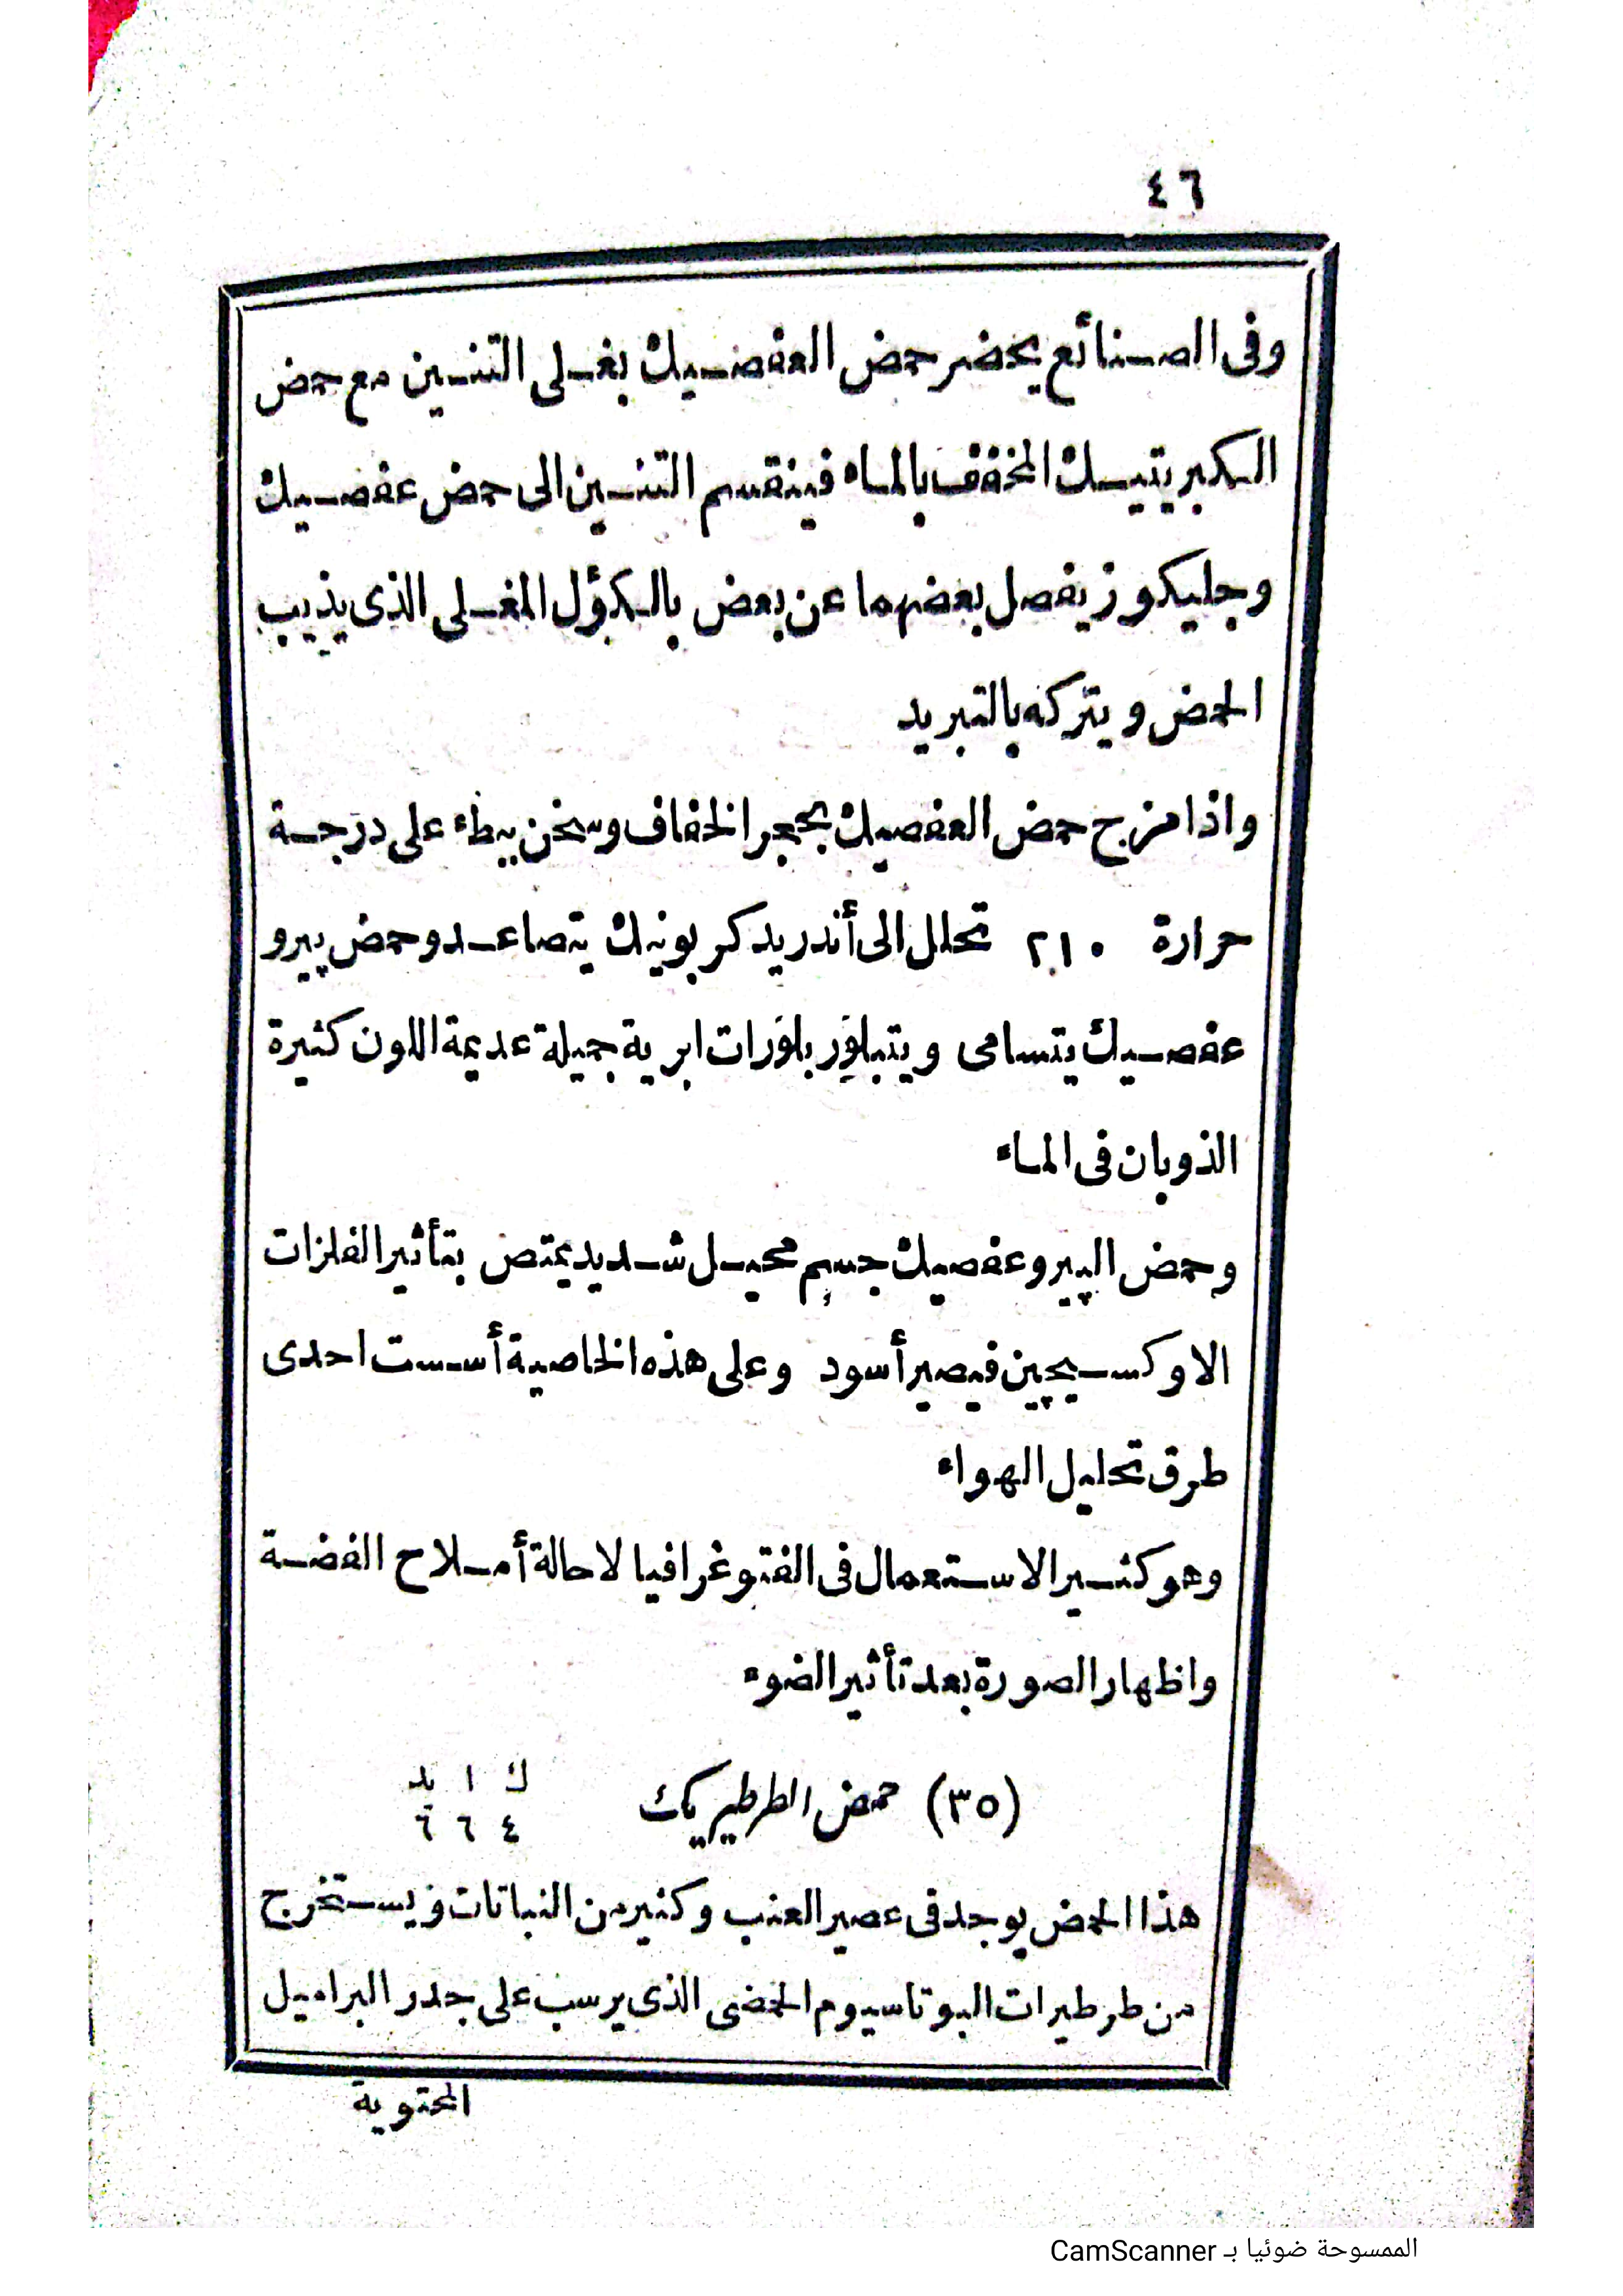 ٤٦
وفى الصنائع يحضر حمض العفصيك بغلى التنين مع حمض
الكبريتيك المخفف بالماء فينقسم التنين الى حمض عفصيك
وجليكوز يفصل بعضهما عن بعض بالكؤل المغلى الذى يذيب
الحمض ويتركه بالتبريد
واذا مزج حمض العفصيك بحجر الخفاف وسخن ببطء على درجة
حرارة ٢١٠ تحلل الى أندريد كربونيك يتصاعد وحمض پيرو
عفصيك يتسامى ويتبلور بلورات ابرية جميلة عديمة اللون كثيرة
الذوبان فى الماء
وحمض الپيروعفصيك جسم محيل شديد يمتص بتأثير الفلزات
الاوكسيچين فيصير أسود وعلى هذه الخاصية أسست احدى
طرق تحليل الهواء
وهو كثير الاستعمال فى الفتوغرافيا لاحالة أملاح الفضة
واظهار الصورة بعد تأثير الضوء
(٣٥) حمض الطرطيريك ك ا يد
٤ ٦ ٦
هذا الحمض يوجد فى عصير العنب وكثير من النباتات ويستخرج
من طرطيرات البوتاسيوم الحمضى الذى يرسب على جدر البراميل
المحتوية
الممسوحة ضوئيا بـ CamScanner